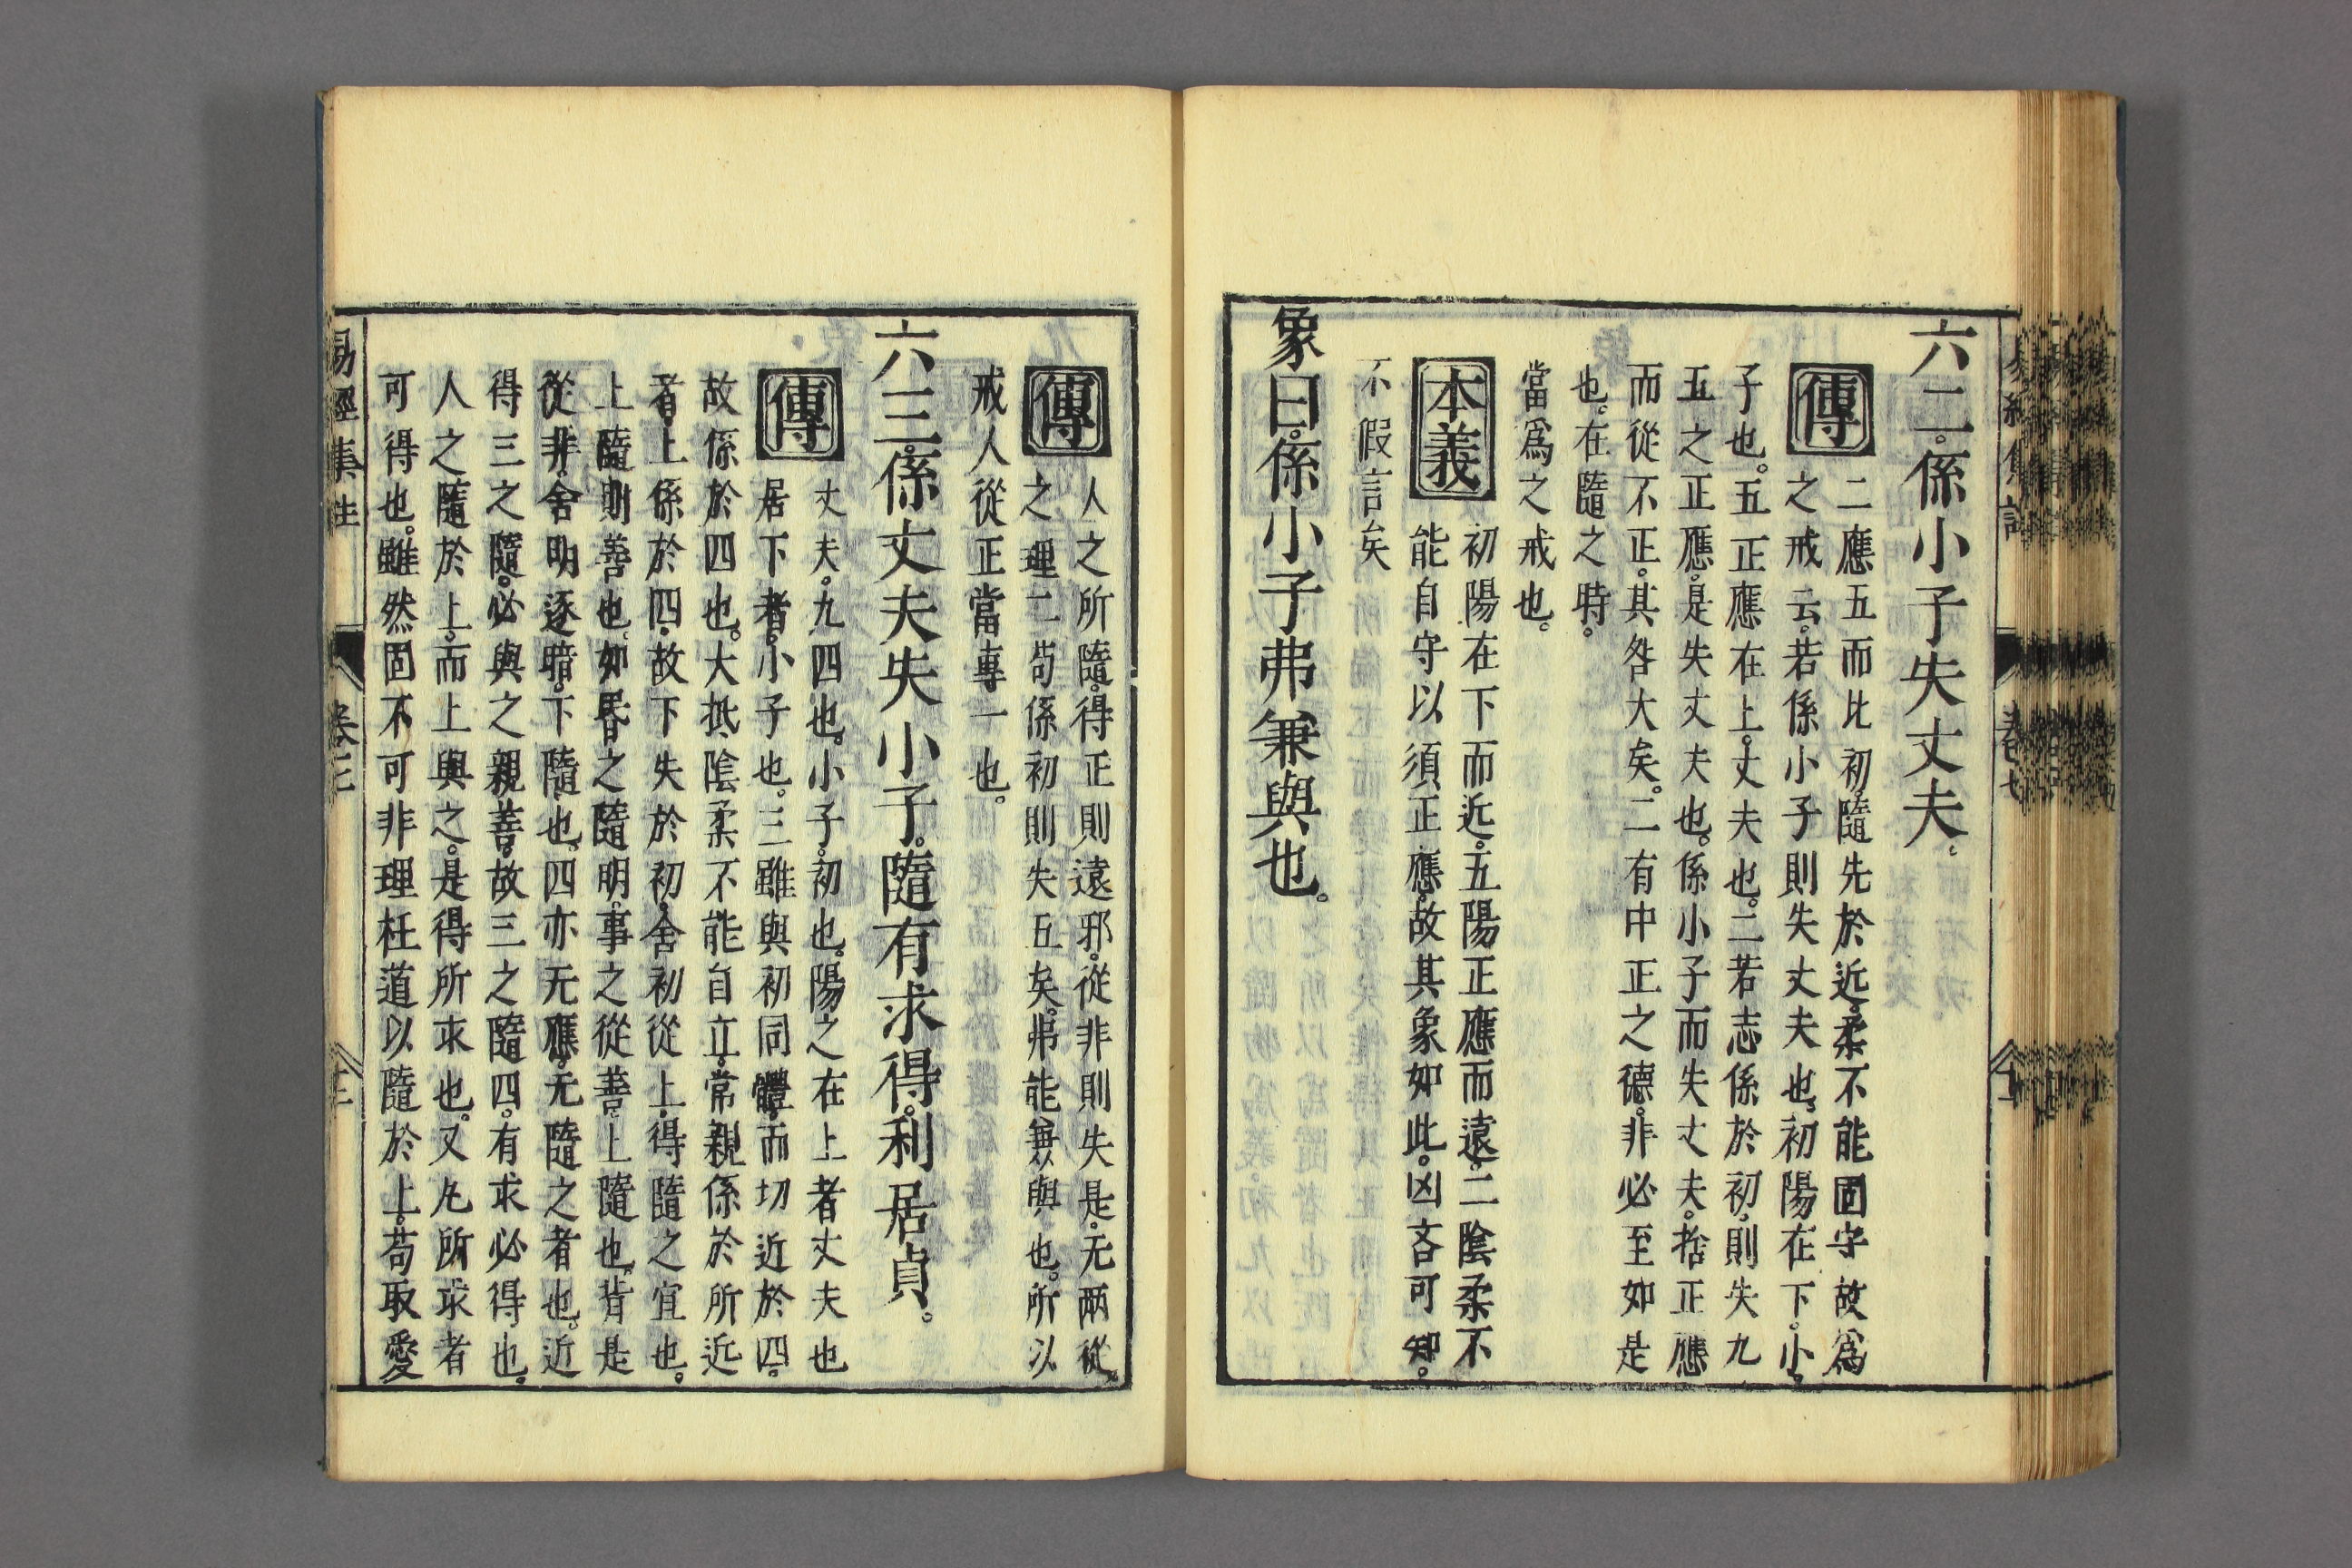 六二。係小子失丈夫。
傳
二應五而比初。隨先於近。柔不能固守故爲
之戒云。若係小子則失丈夫也。初陽在下。小
子也。五正應在上。丈夫也。二若志係於初。則失九
五之正應。是失丈夫也。係小子而失丈夫。捨正應
而從不正。其咎大矣。二有中正之德。非必至如是
也。在隨之時。
當爲之戒也。
本義
初陽在下而近。五陽正應而遠。二陰柔不
能自守以須正應。故其象如此。凶吝可知。
不假言矣
象曰。係小子弗兼與也。
傳
人之所隨。得正則遠邪。從非則失是。无兩從
之理二苟係初則失五矣。弗能兼與也。所以
戒人從正當專一也。
六三。係丈夫失小子。隨有求得。利居貞。
傳
丈夫。九四也。小子。初也。陽之在上者丈夫也
居下者。小子也。三雖與初同體。而切近於四。
故係於四也。大抵陰柔不能自立。常親係於所近
者。上係於四。故下失於初。舍初從上。得隨之宜也。
上隨則善也。如昏之隨明。事之從善。上隨也。背是
從非。舍明逐暗。下隨也。四亦无應。无隨之者也。近
得三之隨。必與之親善。故三之隨四。有求必得也。
人之隨於上。而上與之。是得所求也。又凡所求者
可得也。雖然固不可非理枉道以隨於上。苟取愛
易經集註
卷三